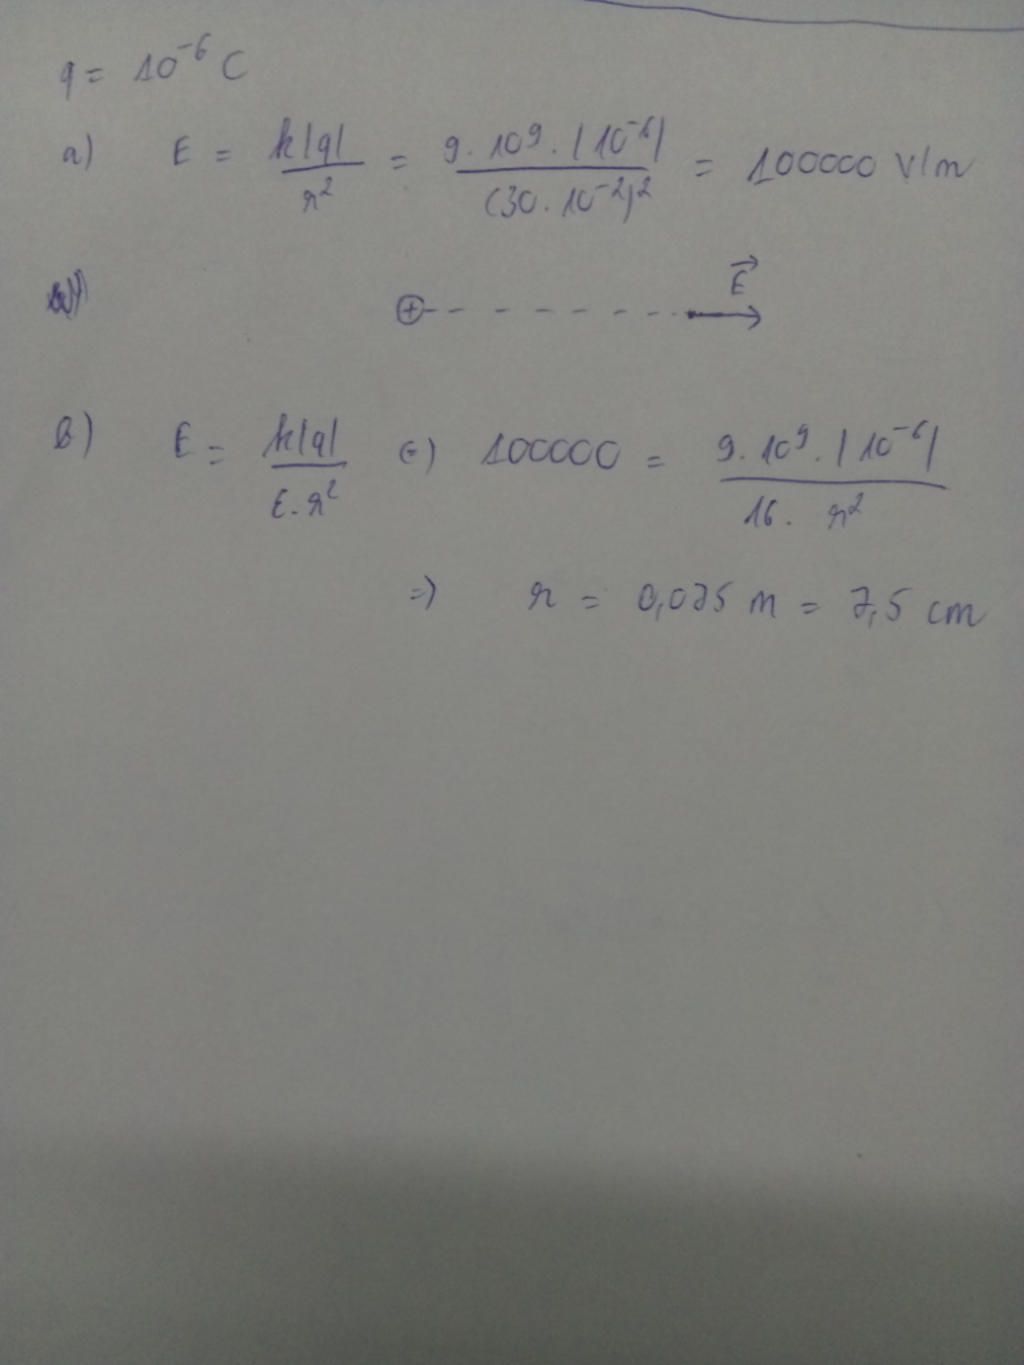 q = 10⁻⁶ C
a) E = k|q| / r² = 9.10⁹.|10⁻⁶| / (30.10⁻²)² = 100000 V/m
E⃗
b) E = k|q| / ε.r² (=) 100000 = 9.10⁹.|10⁻⁶| / 16. r²
=) r = 0,075 m = 7,5 cm